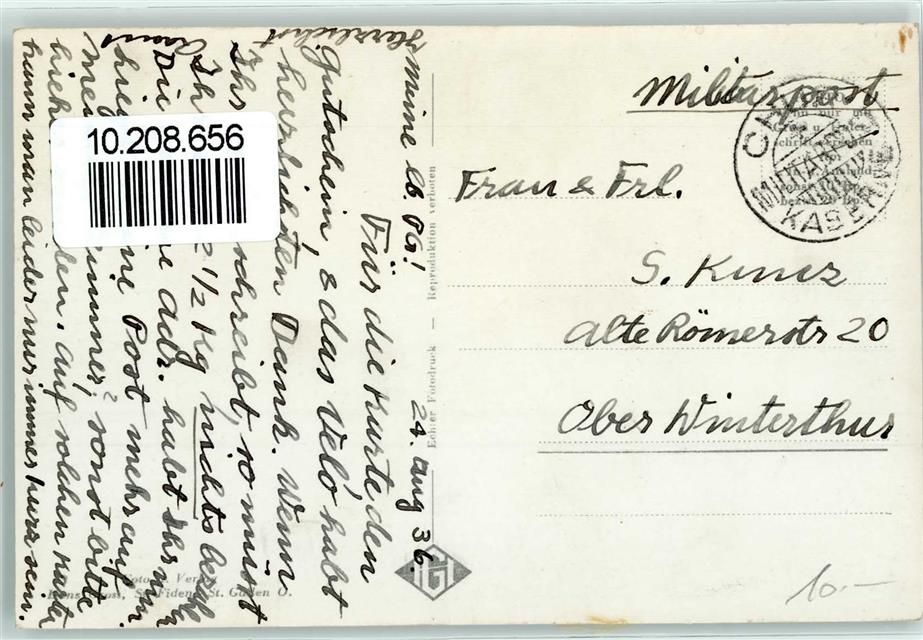 Militärpost
Frau & Frl.
S. Kunz
Alte Römerstr 20
Ober Winterthur
24. Aug 36.
Meine lb. !
Für die Karte den
Gutschein, & das Velo habt
herzlichsten Dank. Wenn
Ihr schreibt, so müsst
Ihr 2 1/2 Kg nichts
Die Adr. habt Ihr nun.
Post mehr auf
sonst bitte
auf solchen Karten
kann man leider nur immer kurz sein.
Herzlichst
10.208.656
Echter Fotodruck — Reproduktion verboten
Foto Verlag
Hans Gross, St. Fiden, St. Gallen O.
KASERNE
10.-